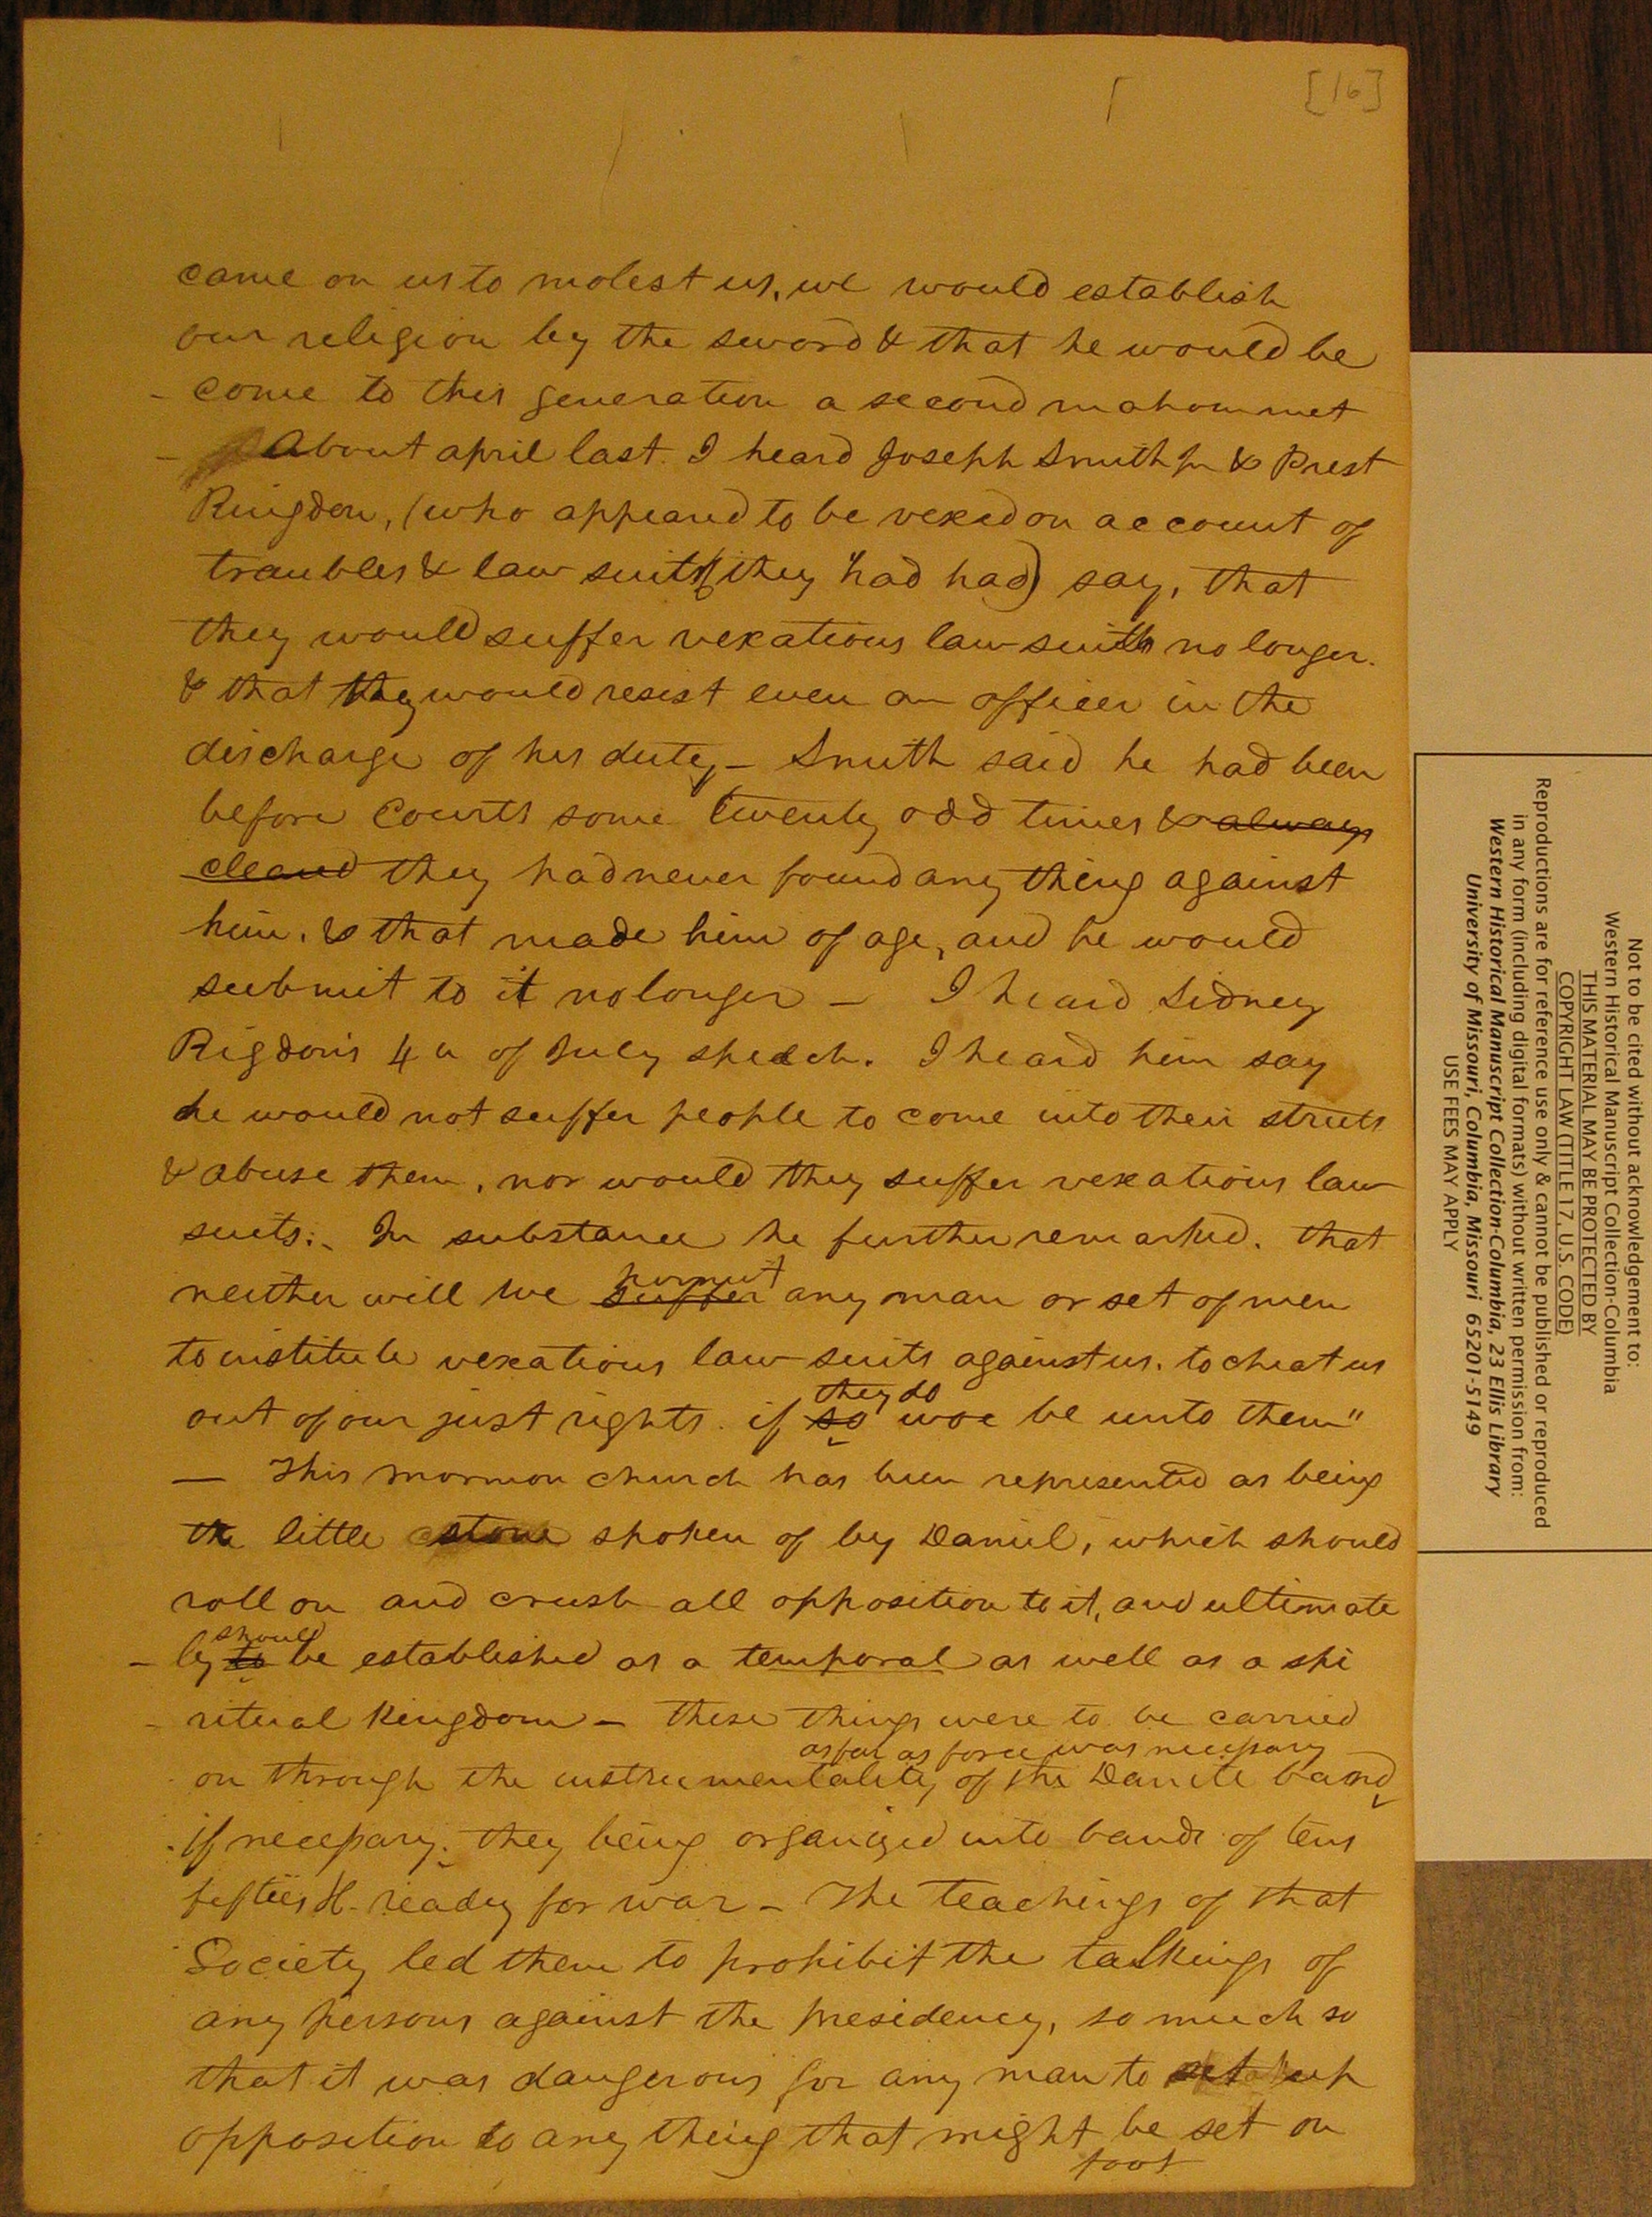 [16]
came on us to molest us, we would establish
our religion by the sword & that he would be
- come to this generation a second mahommet
- About april last I heard Joseph Smith Jr & Prest
Ringdon, (who appeared to be vexed on account of
troubles & law suits they had had) say, that
they would suffer vexatious law suits no longer.
& that they would resist even an officer in the
discharge of his duty - Smith said he had been
before Courts some twenty odd times & always
cleared they had never found any thing against
him, & that made him of age, and he would
submit to it no longer - I heard Sidney
Rigdon's 4th of July speech. I heard him say
he would not suffer people to come into their streets
& abuse them, nor would they suffer vexatious law
suits: In substance he further remarked, that
permit
neither will we suffer any man or set of men
to institute vexatious law suits against us, to cheat us
they do
out of our just rights. if so woe be unto them"
— This mormon church has been represented as being
the little stone spoken of by Daniel, which should
roll on and crush all opposition to it, and ultimate
should
- ly to be established as a temporal as well as a spi
- ritual kingdom - These things were to be carried
as far as force was necessary
on through the instrumentality of the Danite band
if necessary, they being organized into bands of tens
fifties &c. ready for war - The teachings of that
Society led them to prohibit the talkings of
any persons against the presidency, so much so
that it was dangerous for any man to set up
opposition to any thing that might be set on
foot
Not to be cited without acknowledgement to:
Western Historical Manuscript Collection-Columbia
THIS MATERIAL MAY BE PROTECTED BY
COPYRIGHT LAW (TITLE 17, U.S. CODE)
Reproductions are for reference use only & cannot be published or reproduced
in any form (including digital formats) without written permission from:
Western Historical Manuscript Collection-Columbia, 23 Ellis Library
University of Missouri, Columbia, Missouri 65201-5149
USE FEES MAY APPLY